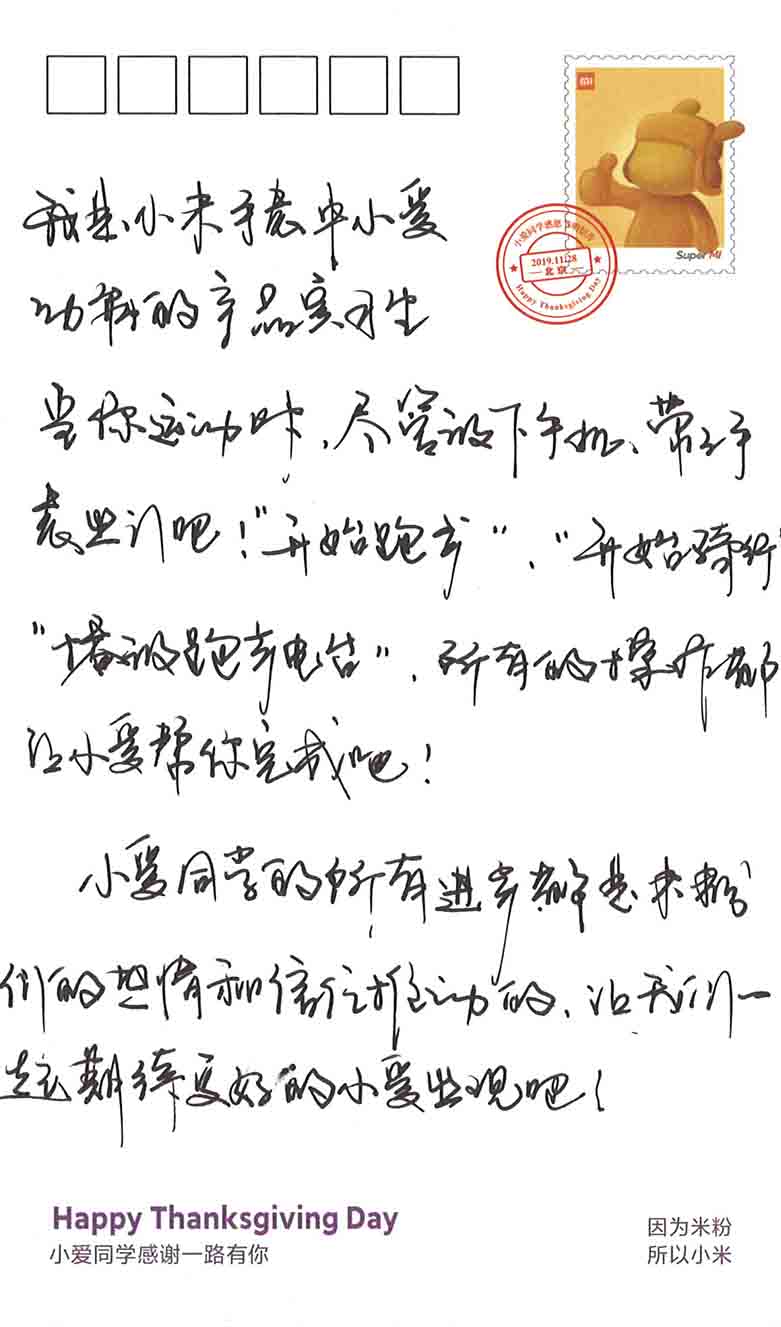 Super MI
小爱同学感恩
2019.11.28
北京
Happy Thanksgiving Day
我是小米手表中小爱
功能的产品实习生
当你运动时,尽管放下手机、带上手
表出门吧!“开始跑步”、“开始骑行”
“播放跑步电台”,所有的操作都
让小爱帮你完成吧!
小爱同学的所有进步都是米粉
们的热情和信任推动的,让我们一
起期待更好的小爱出现吧!
Happy Thanksgiving Day
小爱同学感谢一路有你
因为米粉
所以小米